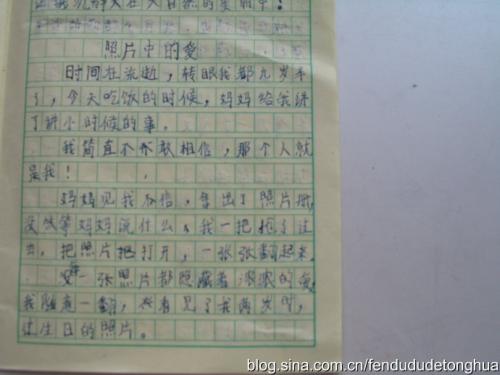 照片中的爱
时间在流逝，转眼我都九岁半
了，今天吃饭的时候，妈妈给我讲
了讲小时候的事。
我简直不敢相信，那个人就
是我！
妈妈见我不信，拿出了照片
没等妈妈说什么，我一把抢了过
去，把照片打开，一张张翻起来，
每一张照片都隐藏着浓浓的爱，
我随意一翻，看见了我两岁时，
过生日的照片。
blog.sina.com.cn/fendududetonghua